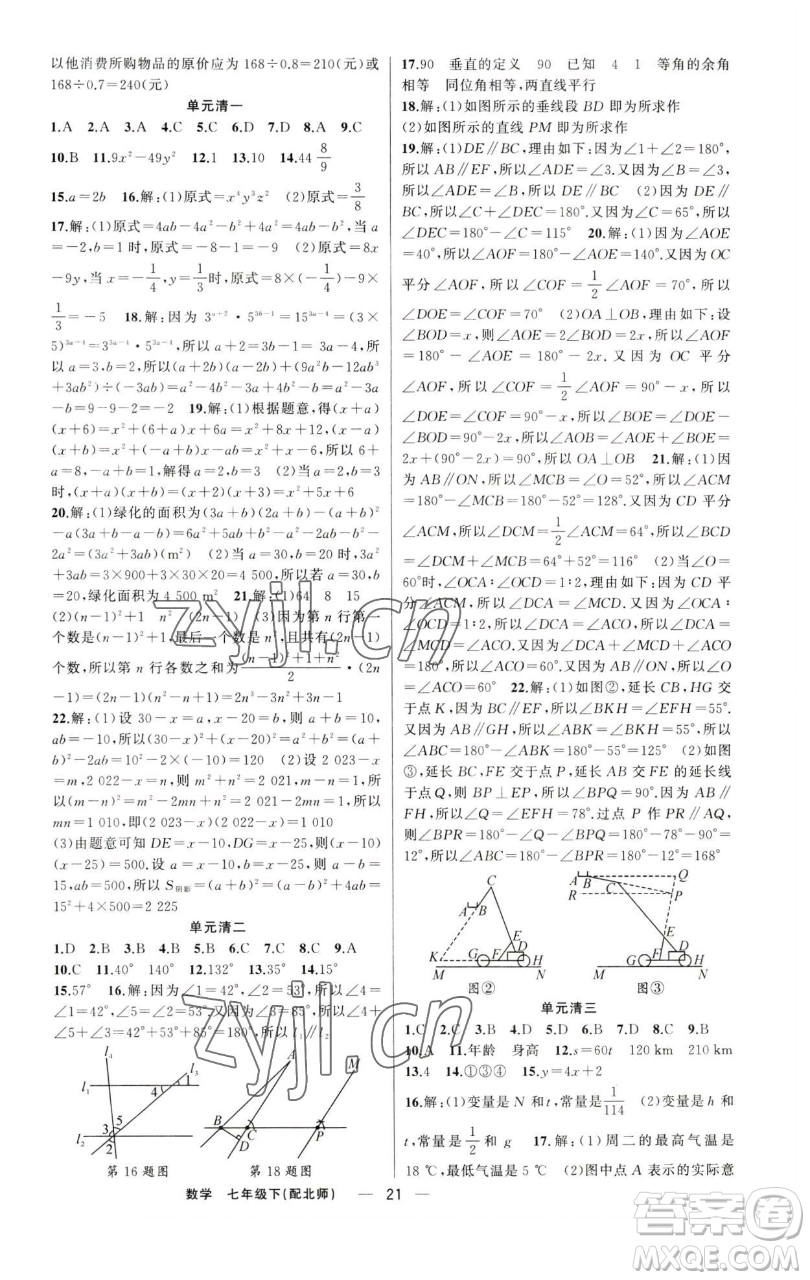 以他消费所购物品的原价应为 168÷0.8=210(元)或
168÷0.7=240(元)
单元清一
1.A 2.A 3.A 4.C 5.C 6.D 7.D 8.A 9.C
10.B 11.9x²-49y² 12.1 13.10 14.44 8/9
15.a=2b 16.解:(1)原式=x⁴y³z² (2)原式=3/8
17.解:(1)原式=4ab-4a²-b²+4a²=4ab-b²,当 a
=-2,b=1 时,原式=-8-1=-9 (2)原式=8x
-9y,当 x=-1/4,y=1/3时,原式=8×(-1/4)-9×
1/3=-5 18.解:因为 3ᵃ⁺²·5³ᵇ⁻¹=15³ᵃ⁻⁴=(3×
5)³ᵃ⁻⁴=3³ᵃ⁻⁴·5³ᵃ⁻⁴,所以 a+2=3b-1=3a-4,所
以 a=3,b=2,所以(a+2b)(a-2b)+(9a³b-12ab³
+3ab²)÷(-3ab)=a²-4b²-3a²+4b²-b=-2a²-b
19.解:(1)根据题意,得(x+a)
(x+6)=x²+(6+a)x+6a=x²+8x+12,(x-a)
(x+b)=x²+(-a+b)x-ab=x²+x-6,所以 6+
a=8,-a+b=1,解得 a=2,b=3 (2)当 a=2,b=3
时,(x+a)(x+b)=(x+2)(x+3)=x²+5x+6
20.解:(1)绿化的面积为(3a+b)(2a+b)-(a+b)²
-(3a+b-a-b)b=6a²+5ab+b²-a²-2ab-b²-
2ab=(5a²+ab)(m²) (2)当 a=30,b=20 时,5a²+
ab=5×900+30×20=5 100,所以若 a=30,b
=20,绿化面积为 4 500 m² 21.解:(1)64 8 15
(2)(n-1)²+1 n² (2n-1) (3)因为第 n 行第一
个数是(n-1)²+1,最后一个数是 n²,且共有(2n-1)
个数,所以第 n 行各数之和为((n-1)²+1+n²)/2·(2n
-1)=(2n-1)(n²-n+1)=2n³-3n²+3n-1
22.解:(1)设 30-x=a,x-20=b,则 a+b=10,
ab=-10,所以(30-x)²+(x-20)²=a²+b²=(a+
b)²-2ab=10²-2×(-10)=120 (2)设 2 023-x
=m,2 022-x=n,则 m²+n²=2 021,m-n=1,所
以(m-n)²=m²-2mn+n²=2 021-2mn=1,所以
mn=1 010,即(2 023-x)(2 022-x)=1 010
(3)由题意可知 DE=x-10,DG=x-25,则(x-10)
(x-25)=500.设 a=x-10,b=x-25,则 a-b=
15,ab=500,所以 S阴影=(a+b)²=(a-b)²+4ab=
15²+4×500=2 225
单元清二
1.D 2.B 3.B 4.D 5.B 6.B 7.C 8.C 9.A
10.C 11.40° 140° 12.132° 13.35° 14.15°
15.57° 16.解:因为∠1=42°,∠2=53°,所以∠4=
∠1=42°,∠5=∠2=53°.又因为∠3=85°,所以∠4+
∠5+∠3=42°+53°+85°=180°,所以 l₁∥l₂
l₄ l₃ l₁ 4 1 5 3 2 l₂
A M B C P
第 16 题图 第 18 题图
17.90 垂直的定义 90 已知 4 1 等角的余角
相等 同位角相等,两直线平行
18.解:(1)如图所示的垂线段 BD 即为所求作
(2)如图所示的直线 PM 即为所求作
19.解:(1)DE∥BC,理由如下:因为∠1+∠2=180°,
所以 AB∥EF,所以∠ADE=∠3.因为∠B=∠3,
所以∠ADE=∠B,所以 DE∥BC (2)因为 DE∥
BC,所以∠C+∠DEC=180°.又因为∠C=65°,所以
∠DEC=180°-∠C=115° 20.解:(1)因为∠AOE
=40°,所以∠AOF=180°-∠AOE=140°.又因为 OC
平分∠AOF,所以∠COF=1/2∠AOF=70°,所以
∠DOE=∠COF=70° (2)OA⊥OB,理由如下:设
∠BOD=x,则∠AOE=2∠BOD=2x,所以∠AOF
=180°-∠AOE=180°-2x.又因为 OC 平分
∠AOF,所以∠COF=1/2∠AOF=90°-x,所以
∠DOE=∠COF=90°-x,所以∠BOE=∠DOE-
∠BOD=90°-2x,所以∠AOB=∠AOE+∠BOE=
2x+(90°-2x)=90°,所以 OA⊥OB 21.解:(1)因
为 AB∥ON,所以∠MCB=∠O=52°,所以∠ACM
=180°-∠MCB=180°-52°=128°.又因为 CD 平分
∠ACM,所以∠DCM=1/2∠ACM=64°,所以∠BCD
=∠DCM+∠MCB=64°+52°=116° (2)当∠O=
60°时,∠OCA∶∠OCD=1∶2,理由如下:因为 CD 平
分∠ACM,所以∠DCA=∠DCM.因为∠OCA∶
∠OCD=1∶2,所以∠OCA=∠DCA,所以∠OCA=
∠DCA=∠DCM=60°.又因为 AB∥ON,所以∠O=
∠OCA=60° 22.解:(1)如图②,延长 CB,HG 交
于点 K,因为 BC∥EF,所以∠BKH=∠EFH=55°.
又因为 AB∥GH,所以∠ABK=∠BKH=55°,所以
∠ABC=180°-∠ABK=180°-55°=125° (2)如图
③,延长 BC,FE 交于点 P,延长 AB,FE 的延长线交
于点 Q,则 BP⊥EP,所以∠BPQ=90°.因为 AB∥
FH,所以∠Q=∠EFH=78°.过点 P 作 PR∥AB,则
∠BPR=180°-∠Q-∠BPQ=180°-78°-90°=
12°,所以∠ABC=180°-∠BPR=180°-12°=168°
C A B E K G F D H M N
A B C Q R P E G F D H M N
图② 图③
单元清三
1.C 2.C 3.B 4.C 5.B 6.D 7.D 8.C 9.B
10.A 11.年龄 身高 12.s=60t 120 km 210 km
13.4 14.①③④ 15.y=4x+2
16.解:(1)变量是 N 和 t,常量是1/114 (2)变量是 h 和
t,常量是1/2和 g 17.解:(1)周二的最高气温是
18 ℃,最低气温是 5 ℃ (2)图中点 A 表示的实际意
数学 七年级下(配北师) — 21 —
zyjl.cn
zyjl.cn
答案卷
MXQE.COM